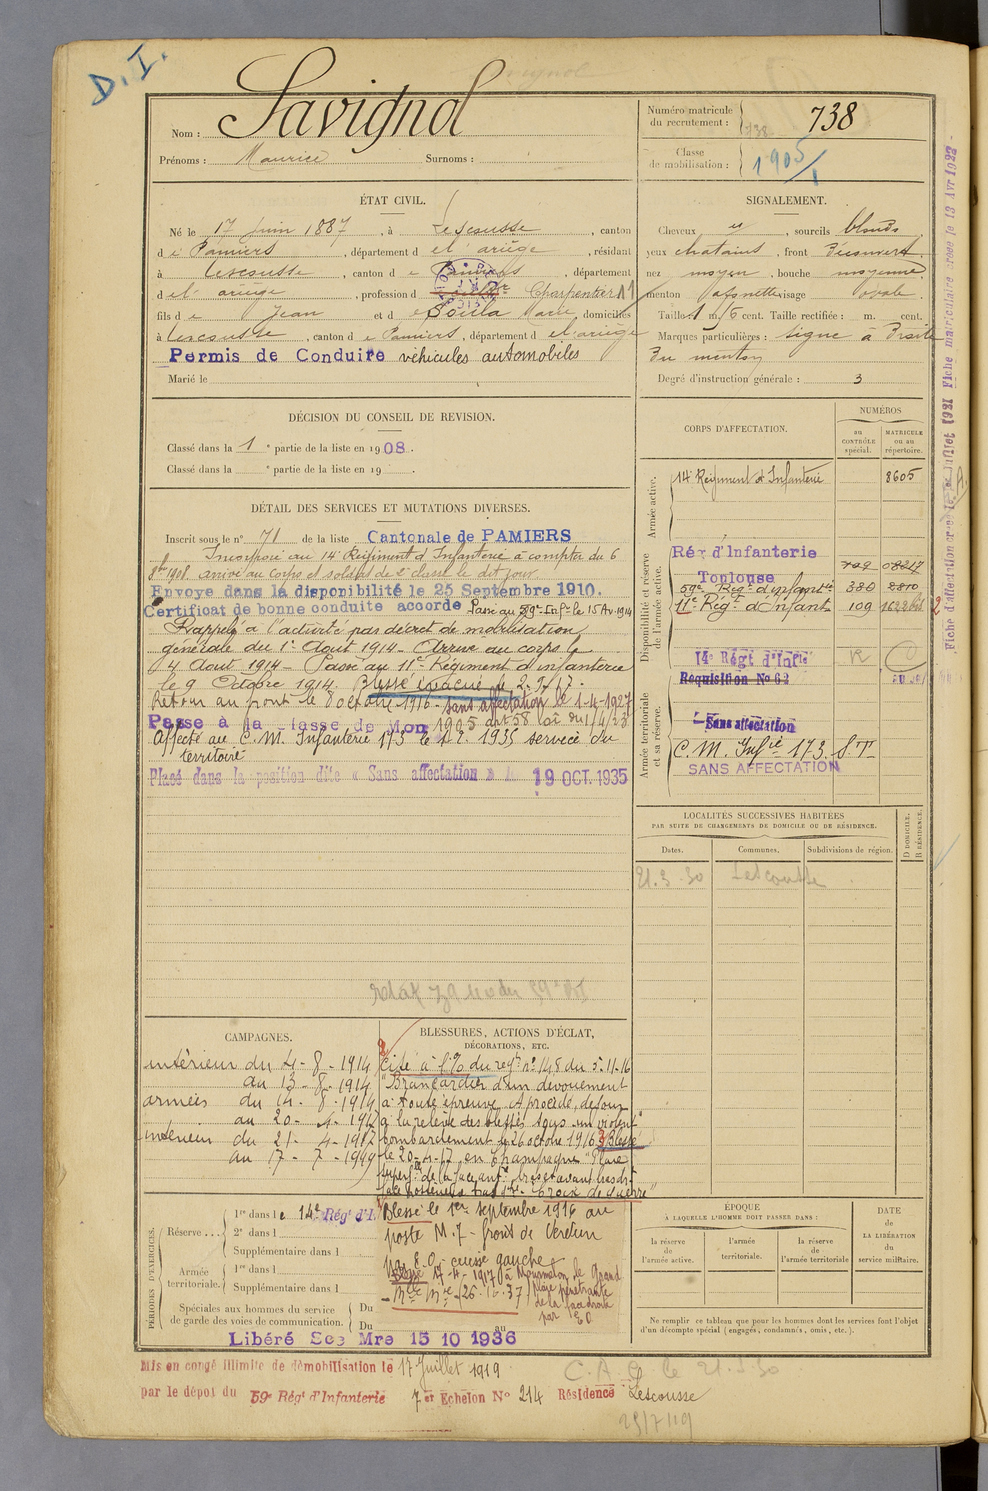 D. I.
Nom : Savignol
Prénoms : Maurice Surnoms :
Numéro matricule du recrutement : 738
Classe de mobilisation : 1905/1
ÉTAT CIVIL.
Né le 17 Juin 1887, à Lescousse, canton
de Pamiers, département de l'ariège, résidant
à Lescousse, canton de Pamiers, département
de l'ariège, profession d Charpentier
fils de Jean et de Soula Marie, domiciliés
à Lescousse, canton de Pamiers, département de l'ariège
Permis de Conduire véhicules automobiles
Marié le
SIGNALEMENT.
Cheveux et, sourcils blonds
yeux chatains, front Découvert
nez moyen, bouche moyenne
menton visage ovale.
Taille : 1 m. cent. Taille rectifiée : m. cent.
Marques particulières : signe à Droite
Du menton
Degré d'instruction générale : 3
DÉCISION DU CONSEIL DE REVISION.
Classé dans la 1 e partie de la liste en 1908.
Classé dans la e partie de la liste en 19 .
DÉTAIL DES SERVICES ET MUTATIONS DIVERSES.
Inscrit sous le n° 71 de la liste Cantonale de PAMIERS
Incorporé au 14 Régiment d'Infanterie à compter du 6
8bre 1908. arrivé au corps et soldat de 2e classe le dit jour.
Envoyé dans la disponibilité le 25 Septembre 1910.
Certificat de bonne conduite accorde Passé au 59e Infie le 15 Av. 1914
Rappelé à l'activité par décret de mobilisation
générale du 1er Aout 1914 - Arrivé au corps le
4 Aout 1914 - Passé au 11e Régiment d'infanterie
le 9 Octobre 1914. Blessé évacué
Retour au front le 8 octobre 1916 - sans affectation le 1-4-1927
Passé à la classe de Mon 1905 art 58 loi du 1/4/23
Affecté au C. M. Infanterie 173 le 4 2. 1935 service du
territoire
Placé dans la position dite « Sans affectation » 19 OCT. 1935
CORPS D'AFFECTATION.
NUMÉROS
au CONTRÔLE spécial.
MATRICULE ou au répertoire.
Armée active.
14 Régiment d'Infanterie 8605
Disponibilité et réserve de l'armée active.
Rég d'Infanterie
Toulouse
59e Regt d'infantie 380
11e Regt d'Infant 109
14e Régt d'Infie
Réquisition No 62
Armée territoriale et sa réserve.
Sans affectation
C. M. Infie 173 S.T.
SANS AFFECTATION
LOCALITÉS SUCCESSIVES HABITÉES
PAR SUITE DE CHANGEMENTS DE DOMICILE OU DE RÉSIDENCE.
Dates. Communes. Subdivisions de région. D DOMICILE. R RÉSIDENCE.
21.3.30 Lescousse
CAMPAGNES.
intérieur du 4 - 8 - 1914
au 13 - 8 - 1914
armées du 14 - 8 - 1914
au 20 - 4 - 1917
intérieur du 21 - 4 - 1917
au 17 - 7 - 1919
BLESSURES, ACTIONS D'ÉCLAT, DÉCORATIONS, ETC.
Cité à l'O/ du regt n° 148 du 5.11.16
"Brancardier d'un dévouement
à toute épreuve. A procédé, de jour
à la relève des blessés sous un violent
bombardement le 26 octobre 1916" Blessé
le 20-4-17 en Champagne "Plaie
Croix de Guerre"
Blessé le 1er septembre 1916 au
poste M. 7 - front de Verdun
E. O. cuisse gauche
Blessé 17-4-1917 à Mourmelon le Grand
plaie pénétrante
de la face droite
par EO
PÉRIODES D'EXERCICES.
Réserve 1re dans le 14e Régt d'I.
2e dans l
Supplémentaire dans l
Armée territoriale. 1re dans l
Supplémentaire dans l
Spéciales aux hommes du service de garde des voies de communication. Du
Du au
Libéré Sce Mre 15 10 1936
ÉPOQUE
À LAQUELLE L'HOMME DOIT PASSER DANS :
la réserve de l'armée active.
l'armée territoriale.
la réserve de l'armée territoriale
DATE de LA LIBÉRATION du service militaire.
Ne remplir ce tableau que pour les hommes dont les services font l'objet
d'un décompte spécial (engagés, condamnés, omis, etc.).
Mis en congé illimité de démobilisation le 17 Juillet 1919
par le dépot du 59e Régt d'Infanterie 7e Echelon No 214 Résidence Lescousse
C. A. le 21-3-30